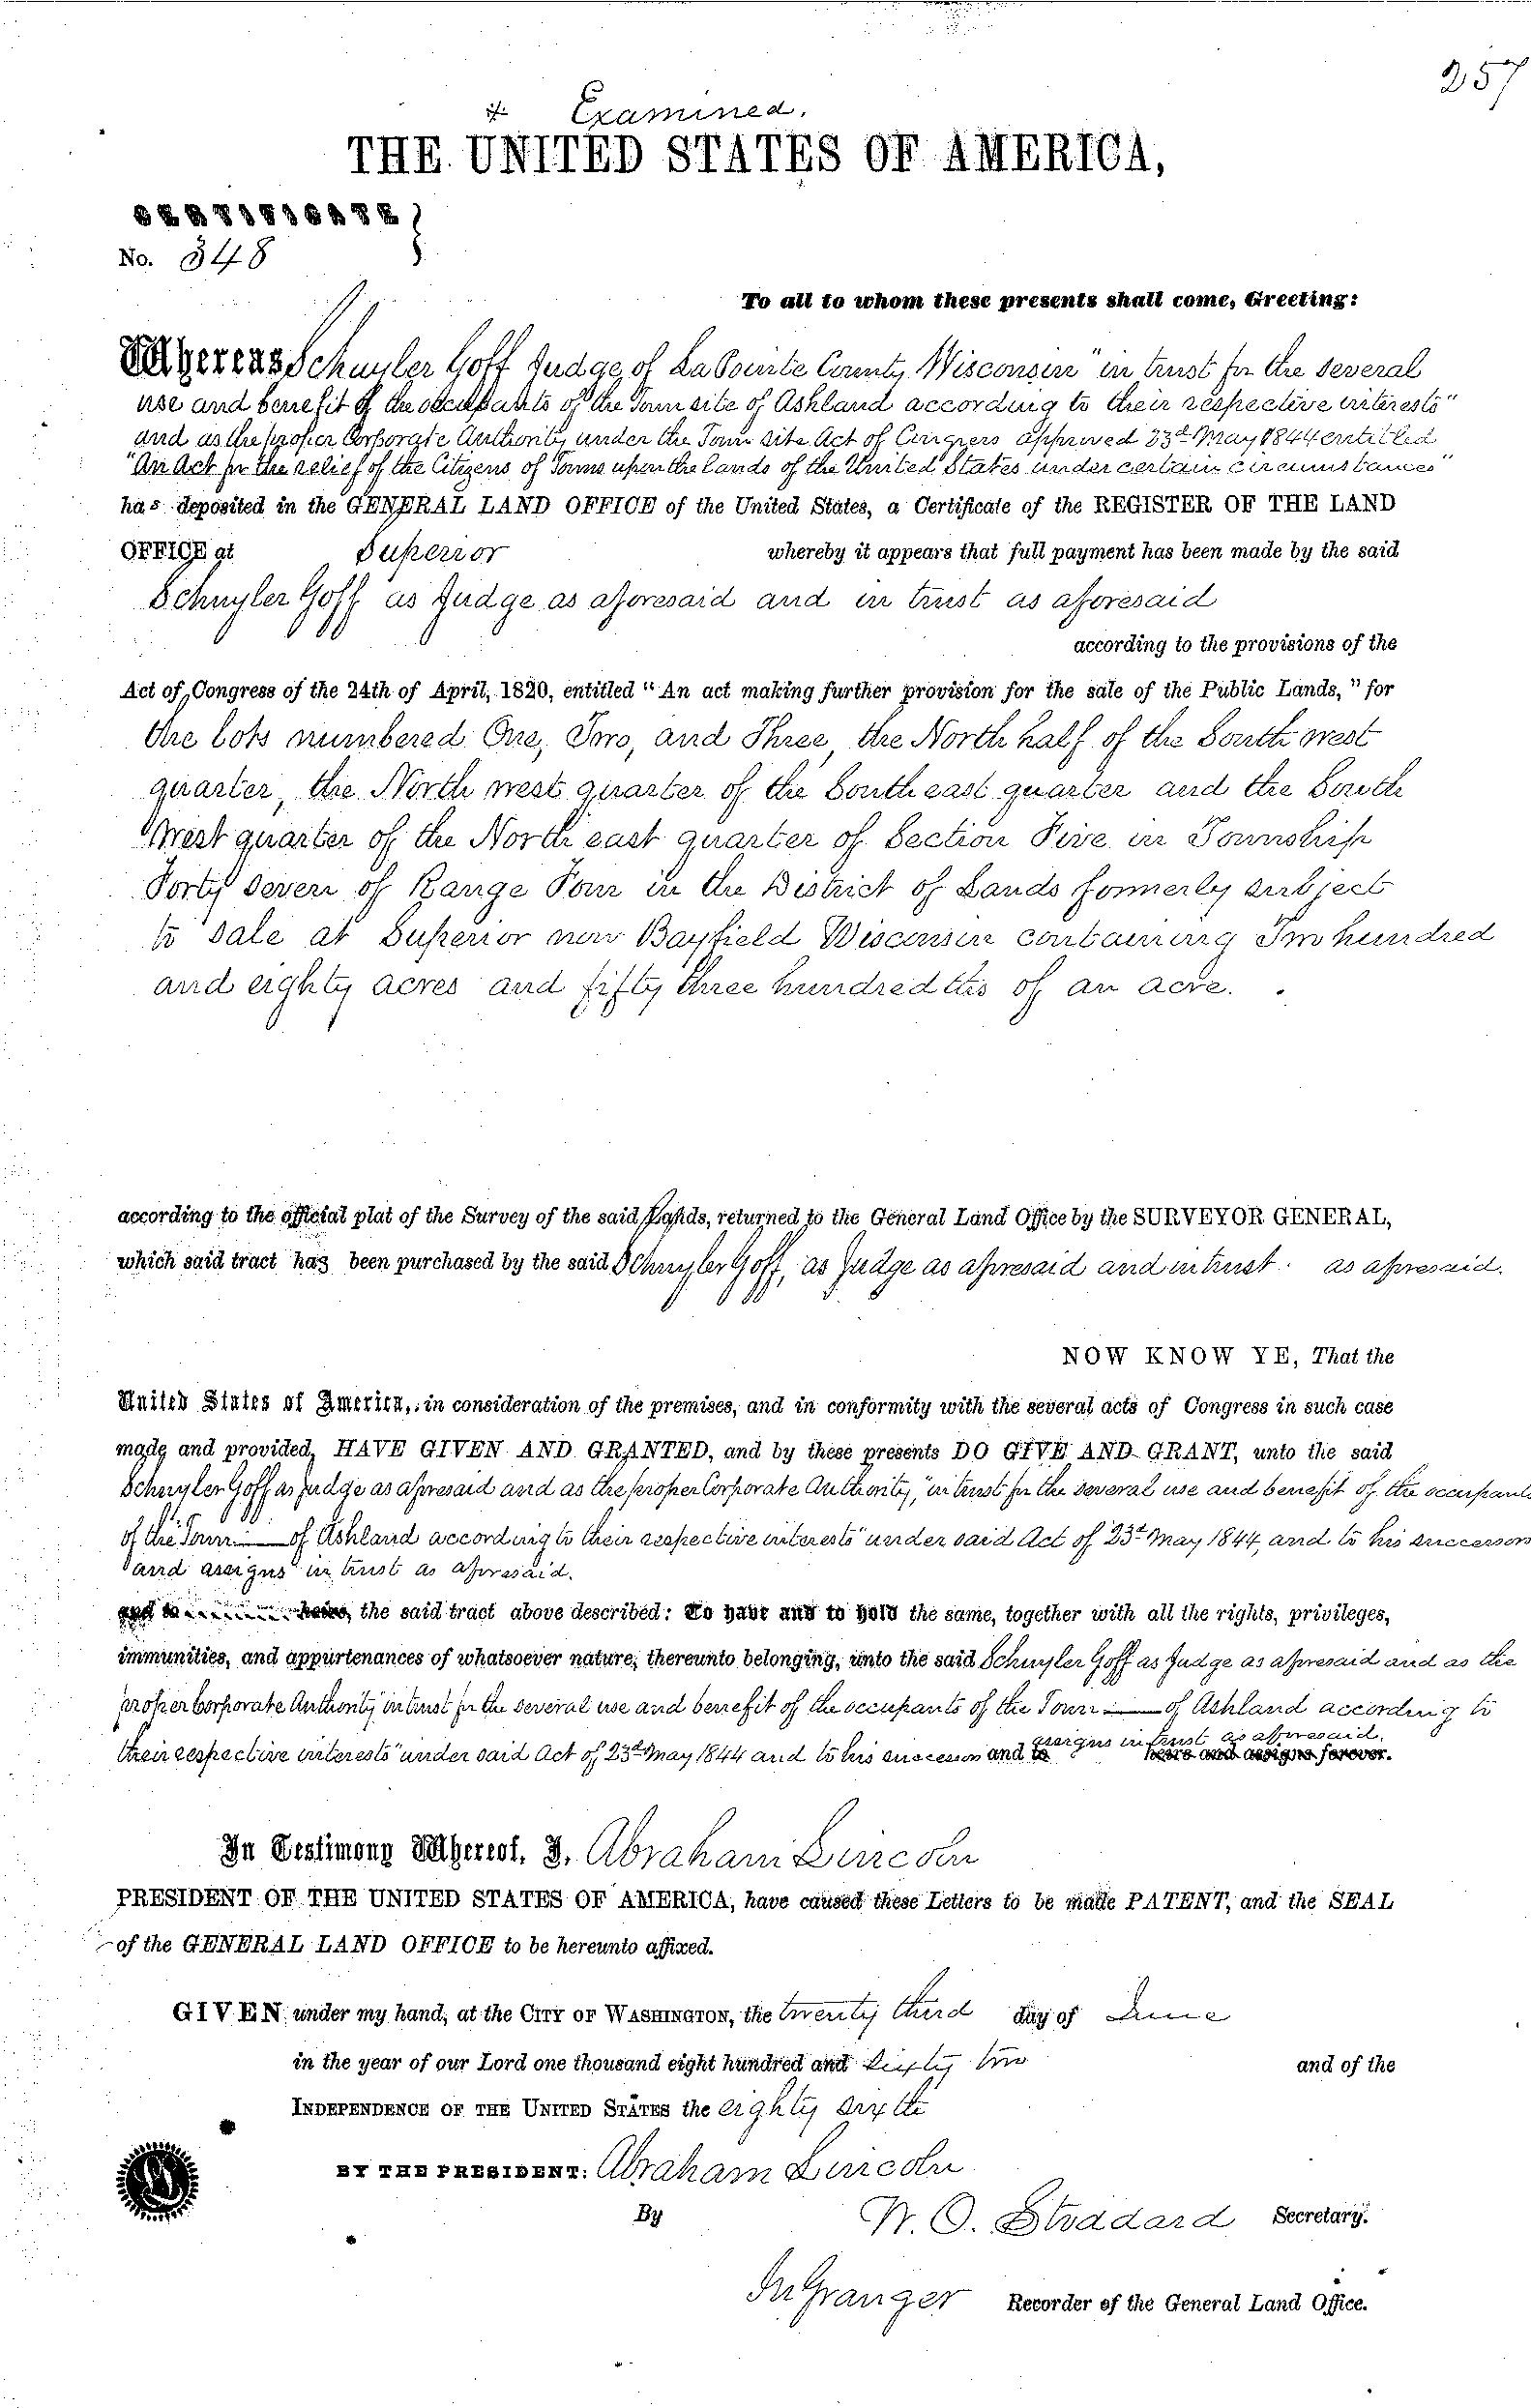 257
Examined.
THE UNITED STATES OF AMERICA,
CERTIFICATE
No. 348
To all to whom these presents shall come, Greeting:
Whereas Schuyler Goff Judge of La Pointe County Wisconsin "in trust for the several
use and benefit of the occupants of the Town site of Ashland according to their respective interests"
and as the proper Corporate Authority under the Town site Act of Congress approved 23d May 1844 entitled
"An Act for the relief of the Citizens of Towns upon the lands of the United States under certain circumstances"
has deposited in the GENERAL LAND OFFICE of the United States, a Certificate of the REGISTER OF THE LAND
OFFICE at Superior whereby it appears that full payment has been made by the said
Schuyler Goff as Judge as aforesaid and in trust as aforesaid
according to the provisions of the
Act of Congress of the 24th of April, 1820, entitled "An act making further provision for the sale of the Public Lands," for
the lots numbered One, Two, and Three, the North half of the South west
quarter, the North west quarter of the South east quarter and the South
West quarter of the North east quarter of Section Five in Township
Forty Seven of Range Four in the District of Lands formerly subject
to sale at Superior now Bayfield Wisconsin containing Two hundred
and eighty acres and fifty three hundredths of an acre.
according to the official plat of the Survey of the said Lands, returned to the General Land Office by the SURVEYOR GENERAL,
which said tract has been purchased by the said Schuyler Goff, as Judge as aforesaid and in trust as aforesaid.
NOW KNOW YE, That the
United States of America, in consideration of the premises, and in conformity with the several acts of Congress in such case
made and provided, HAVE GIVEN AND GRANTED, and by these presents DO GIVE AND GRANT, unto the said
Schuyler Goff as Judge as aforesaid and as the proper Corporate Authority, "in trust for the several use and benefit of the occupants
of the Town of Ashland according to their respective interests" under said Act of 23d May 1844, and to his successors
and assigns in trust as aforesaid.
and to heirs, the said tract above described: To have and to hold the same, together with all the rights, privileges,
immunities, and appurtenances of whatsoever nature, thereunto belonging, unto the said Schuyler Goff as Judge as aforesaid and as the
proper Corporate Authority "in trust for the several use and benefit of the occupants of the Town of Ashland according to
their respective interests" under said Act of 23d May 1844 and to his successors and to assigns in trust as aforesaid. heirs and assigns forever.
In Testimony Whereof, I, Abraham Lincoln
PRESIDENT OF THE UNITED STATES OF AMERICA, have caused these Letters to be made PATENT, and the SEAL
of the GENERAL LAND OFFICE to be hereunto affixed.
GIVEN under my hand, at the CITY OF WASHINGTON, the twenty third day of June
in the year of our Lord one thousand eight hundred and sixty two and of the
INDEPENDENCE OF THE UNITED STATES the eighty sixth
BY THE PRESIDENT: Abraham Lincoln
By W. O. Stoddard Secretary.
Granger Recorder of the General Land Office.